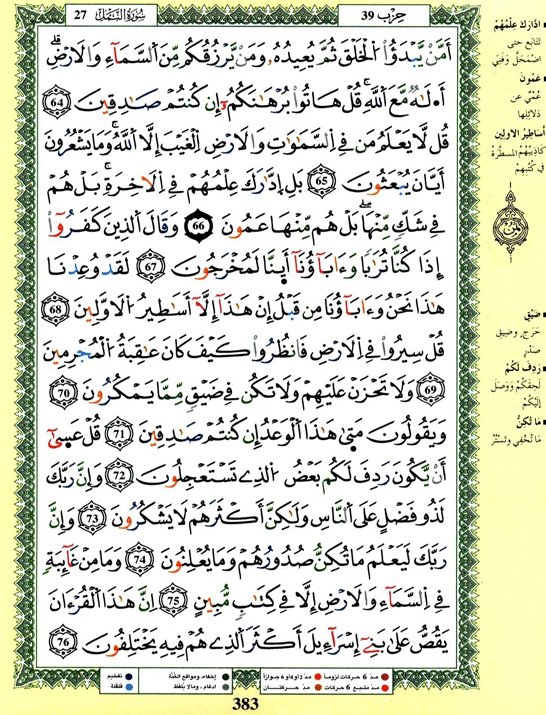 حِزْب 39
سُورَةُ النَّمْل 27
أَمَّنْ يَّبْدَؤُاْ اُ۬لْخَلْقَ ثُمَّ يُعِيدُهُۥ وَمَنْ يَّرْزُقُكُم مِّنَ اَ۬لسَّمَآءِ وَالَارْضِۖ
أَ۟لَٰهٌ مَّعَ اَ۬للَّهِۖ قُلْ هَاتُواْ بُرْهَٰنَكُمُۥٓ إِن كُنتُمْ صَٰدِقِينَ 64
قُل لَّا يَعْلَمُ مَن فِے اِ۬لسَّمَٰوَٰتِ وَالَارْضِ اِ۬لْغَيْبَ إِلَّا اَ۬للَّهُۖ وَمَا يَشْعُرُونَ
أَيَّانَ يُبْعَثُونَ 65 بَلِ اِ۪دَّٰرَكَ عِلْمُهُمْ فِے اِ۬لَاخِرَةِۖ بَلْ هُمْ
فِے شَكٍّ مِّنْهَاۖ بَلْ هُم مِّنْهَا عَمُونَ 66 وَقَالَ اَ۬لذِينَ كَفَرُوٓاْ
إِذَا كُنَّا تُرَٰباً وَءَابَآؤُنَآ أَٮِٕنَّا لَمُخْرَجُونَ 67 لَقَدْ وُعِدْنَا
هَٰذَا نَحْنُ وَءَابَآؤُنَا مِن قَبْلُ إِنْ هَٰذَآ إِلَّآ أَسَٰطِيرُ اُ۬لَاوَّلِينَ 68
قُلْ سِيرُواْ فِے اِ۬لَارْضِ فَانظُرُواْ كَيْفَ كَانَ عَٰقِبَةُ اُ۬لْمُجْرِمِينَ
69 وَلَا تَحْزَنْ عَلَيْهِمْ وَلَا تَكُن فِے ضَيْقٍ مِّمَّا يَمْكُرُونَ 70
وَيَقُولُونَ مَتَىٰ هَٰذَا اَ۬لْوَعْدُ إِن كُنتُمْ صَٰدِقِينَ 71 قُلْ عَسَىٰٓ
أَنْ يَّكُونَ رَدِفَ لَكُم بَعْضُ اُ۬لذِے تَسْتَعْجِلُونَ 72 وَإِنَّ رَبَّكَ
لَذُو فَضْلٍ عَلَى اَ۬لنَّاسِ وَلَٰكِنَّ أَكْثَرَهُمْ لَا يَشْكُرُونَ 73 وَإِنَّ
رَبَّكَ لَيَعْلَمُ مَا تُكِنُّ صُدُورُهُمْ وَمَا يُعْلِنُونَ 74 وَمَا مِنْ غَآئِبَةٍ
فِے اِ۬لسَّمَآءِ وَالَارْضِ إِلَّا فِے كِتَٰبٍ مُّبِينٍ 75 إِنَّ هَٰذَا اَ۬لْقُرْءَانَ
يَقُصُّ عَلَىٰ بَنِےٓ إِسْرَآءِيلَ أَكْثَرَ اَ۬لذِے هُمْ فِيهِ يَخْتَلِفُونَ 76
ادَّارَكَ عِلْمُهُمْ
تتابع حتى
اضمحل وفني
عَمُونَ
عُمْيٌ عن
دلائلها
أساطير الاولين
أكاذيبهم المسطّرة
في كتبهم
ثمن
ضَيْقٍ
حَرَجٍ وضيقِ
صَدْرٍ
رَدِفَ لَكُم
لحقكم ووصل
إليكم
مَا تُكِنُّ
ما تُخفي وتستُرُ
مدّ 6 حركات لزوماً
مدّ 2 أو 4 أو 6 جوازاً
مدّ مشبع 6 حركات
مدّ حركتان
إخفاء، ومواقع الغُنَّة
ادغام، وما لا يُلفَظ
تفخيم
قلقلة
383